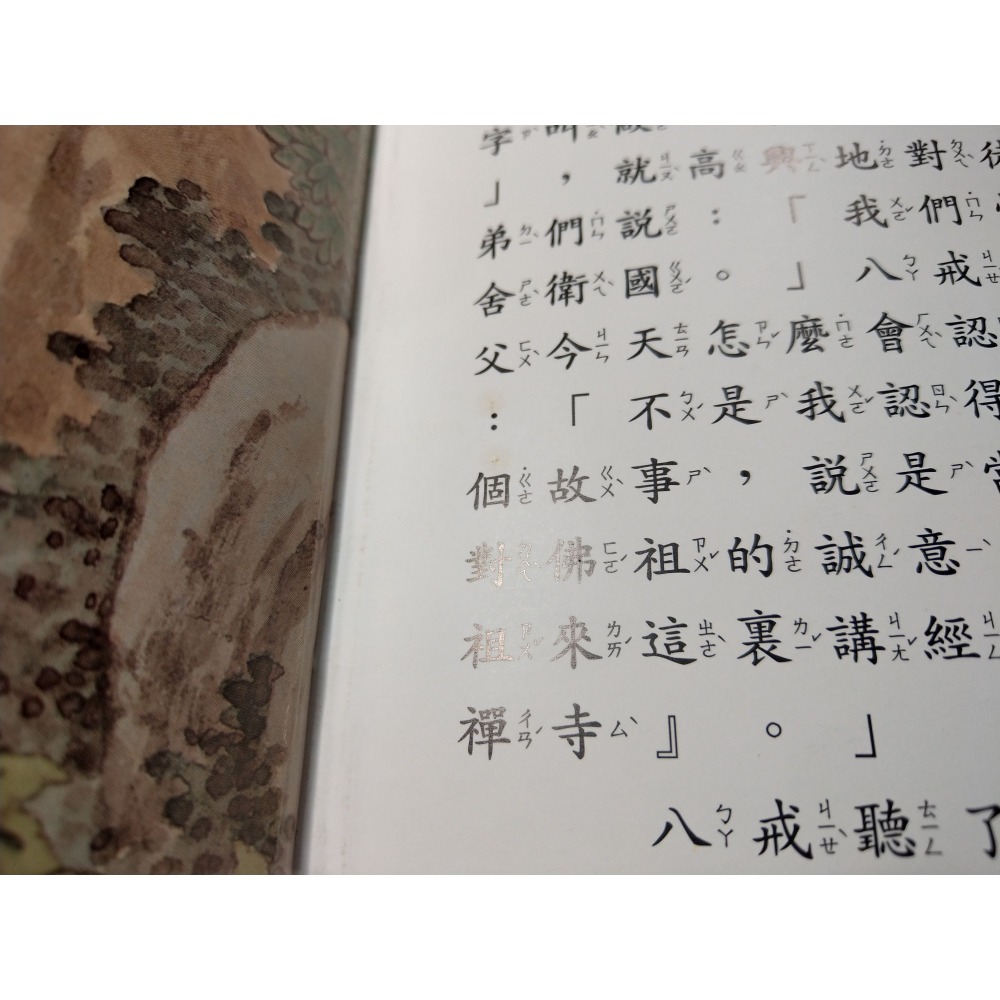 字叫做
」，就高興地對徒
弟們說：「我們
舍衛國。」八戒
父今天怎麼會認
：「不是我認得
個故事，說是當
對佛祖的誠意
祖來這裏講經
禪寺』。」
八戒聽了